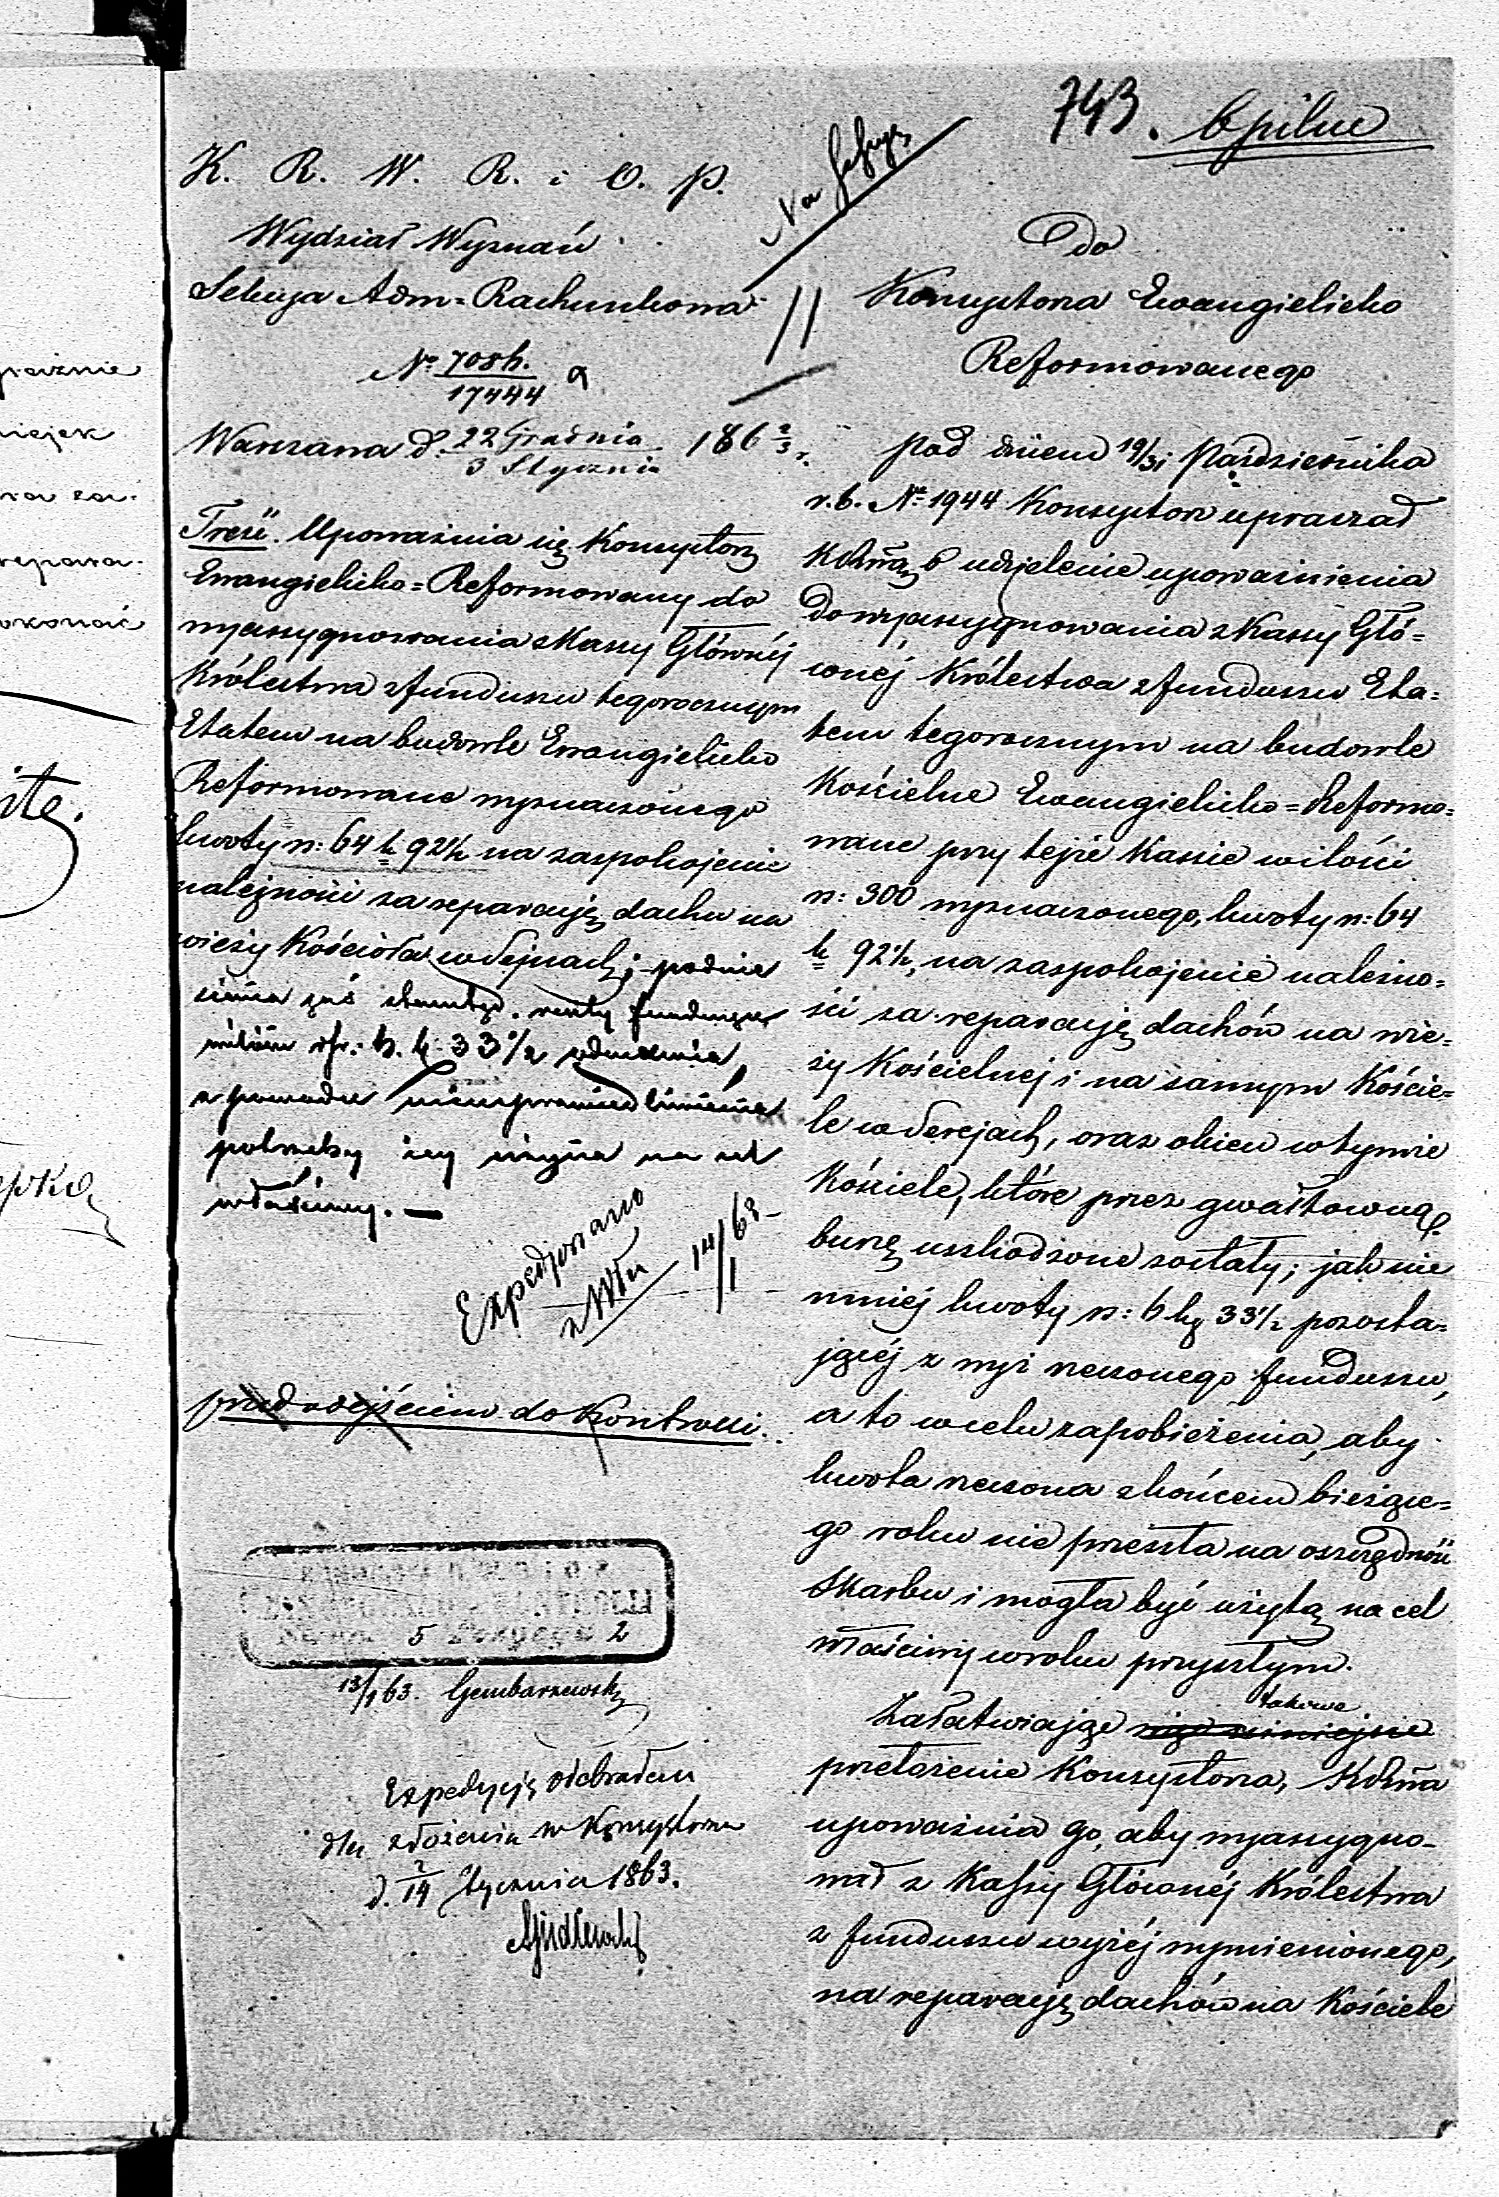 743. bpilne
K. R. W. R. i O. P.
Wydział Wyznań
Sekcya Adm=Rachunkowa
Nº 7086.
17444 a
Warszawa d. 22 Grudnia
3 Stycznia 186 2/3 r.
Treść. Upoważnia się Konsystorz
Ewangielicko=Reformowany do
wyassygnowania z Kassy Głównéj
Królestwa z funduszu tegorocznym
Etatem na budowle Ewangielicko
Reformowane wyznaczonego
kwoty rs: 64 k 92½ na zaspokojenie
należności za reparacyję dachu na
wieży Kościoła w Sejnach; podnie
sienia zaś
33½
z powodu nieusprawiedliwienia
potrzeby jej użycia na cel
właściwy. —
Expedjowano
14/1 63
przed wejściem do Kontrolli.
5 2
13/1 63. Gembarzewski
Expedycyję odebrałem
dla złożenia w Konsystorzu
d. 2/14 Stycznia 1863.
Do
Konsystorza Ewangielicko
Reformowanego
Pod dniem 19/31 Października
r. b. Nº 1944 Konsystorz upraszał
o udzielenie upoważnienia
do wyassygnowania z Kassy Głó=
wnéj Królestwa z funduszu Eta=
tem tegorocznym na budowle
Kościelne Ewangielicko=Reformo=
wane przy tejże Kassie w ilości
rs: 300 wyznaczonego, kwoty rs: 64
k 92½, na zaspokojenie należno=
ści za reparacyję dachów na wie=
ży Kościelnej i na samym Koście=
le w Serejach, oraz okien w tymże
Kościele, które przez gwałtowną
burzę uszkodzone zostały; jak nie
mniej kwoty rs: 6 k 33½ pozosta=
jącéj z wyż rzeczonego funduszu,
a to w celu zapobieżenia, aby
kwota rzeczona z końcem bieżące=
go roku nie przeszła na oszczędność
Skarbu i mogła być użytą na cel
właściwy w roku przyszłym.
Załatwiając takowe
przełożenie Konsystorza,
upoważnia go, aby wyassygno=
wał z Kassy Głównéj Królestwa
z funduszu wyżéj wymienionego,
na reparacyję dachów na Kościele